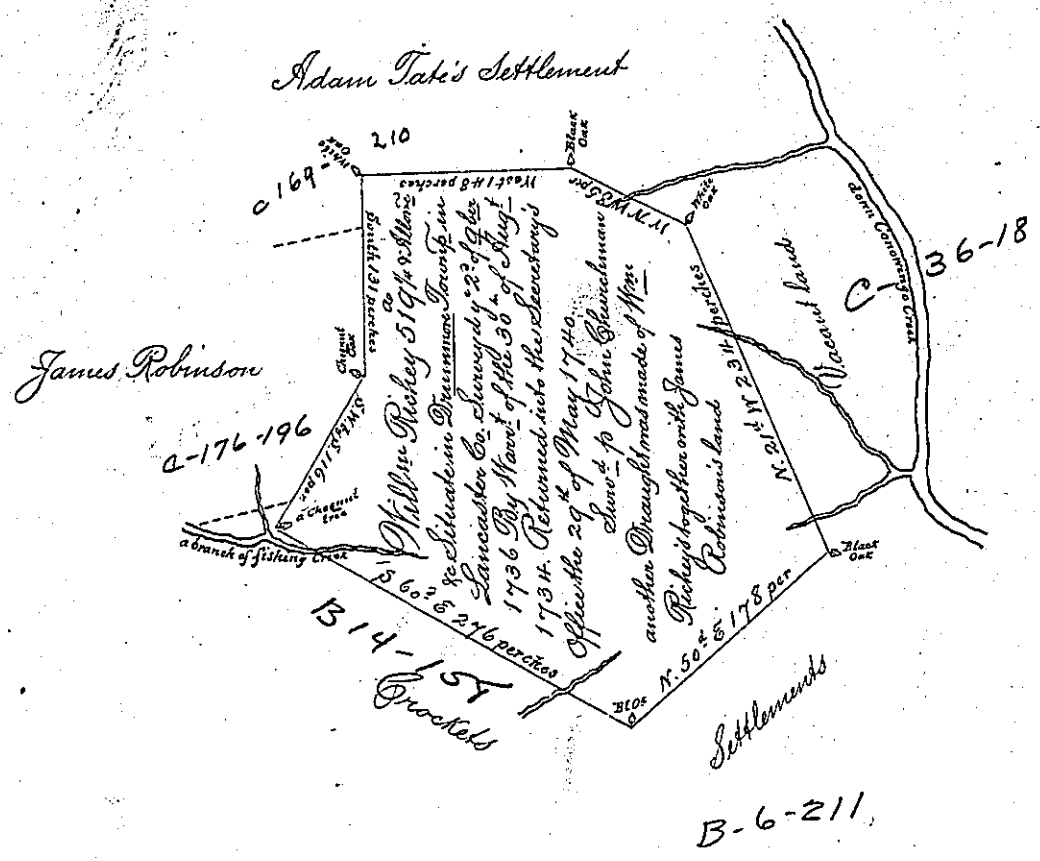 Adam Tate's Settlement
210
C 169-
White Oak
Black Oak
West 148 perches
WNW 85 per
White Oak
South 131 perches
Chesnut Oak
James Robinson
C-176-196
a Chesnut tree
a branch of fishing Creek
Willm Richey 519 1/4 & Allowce
&c Situate in Drummore Townsp in
Lancaster Co. Surveyd ye 2d of 9ber
1736 By Warrt of the 30th of Augt
1734. Returned into the Secretary's
Office the 29th of May 1740.
Survd p John Churchman
another Draught was made of Wm
Richey's together with James
Robinson's land
N. 21d W 234 perches
Vacant land
down Conowingo Creek
C-36-18
Black Oak
N. 50d E 178 per
S 60d E 276 perches
Bl Ok
B 14-154
Crockets
Settlements
B-6-211